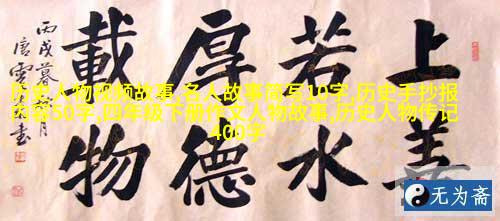 上善
若水
厚德
載物
丙戌暮月
唐雲書
历史人物视频故事,名人故事简写10字,历史手抄报
内容50字,四年级下册作文人物故事,历史人物传记
400字
无为斋